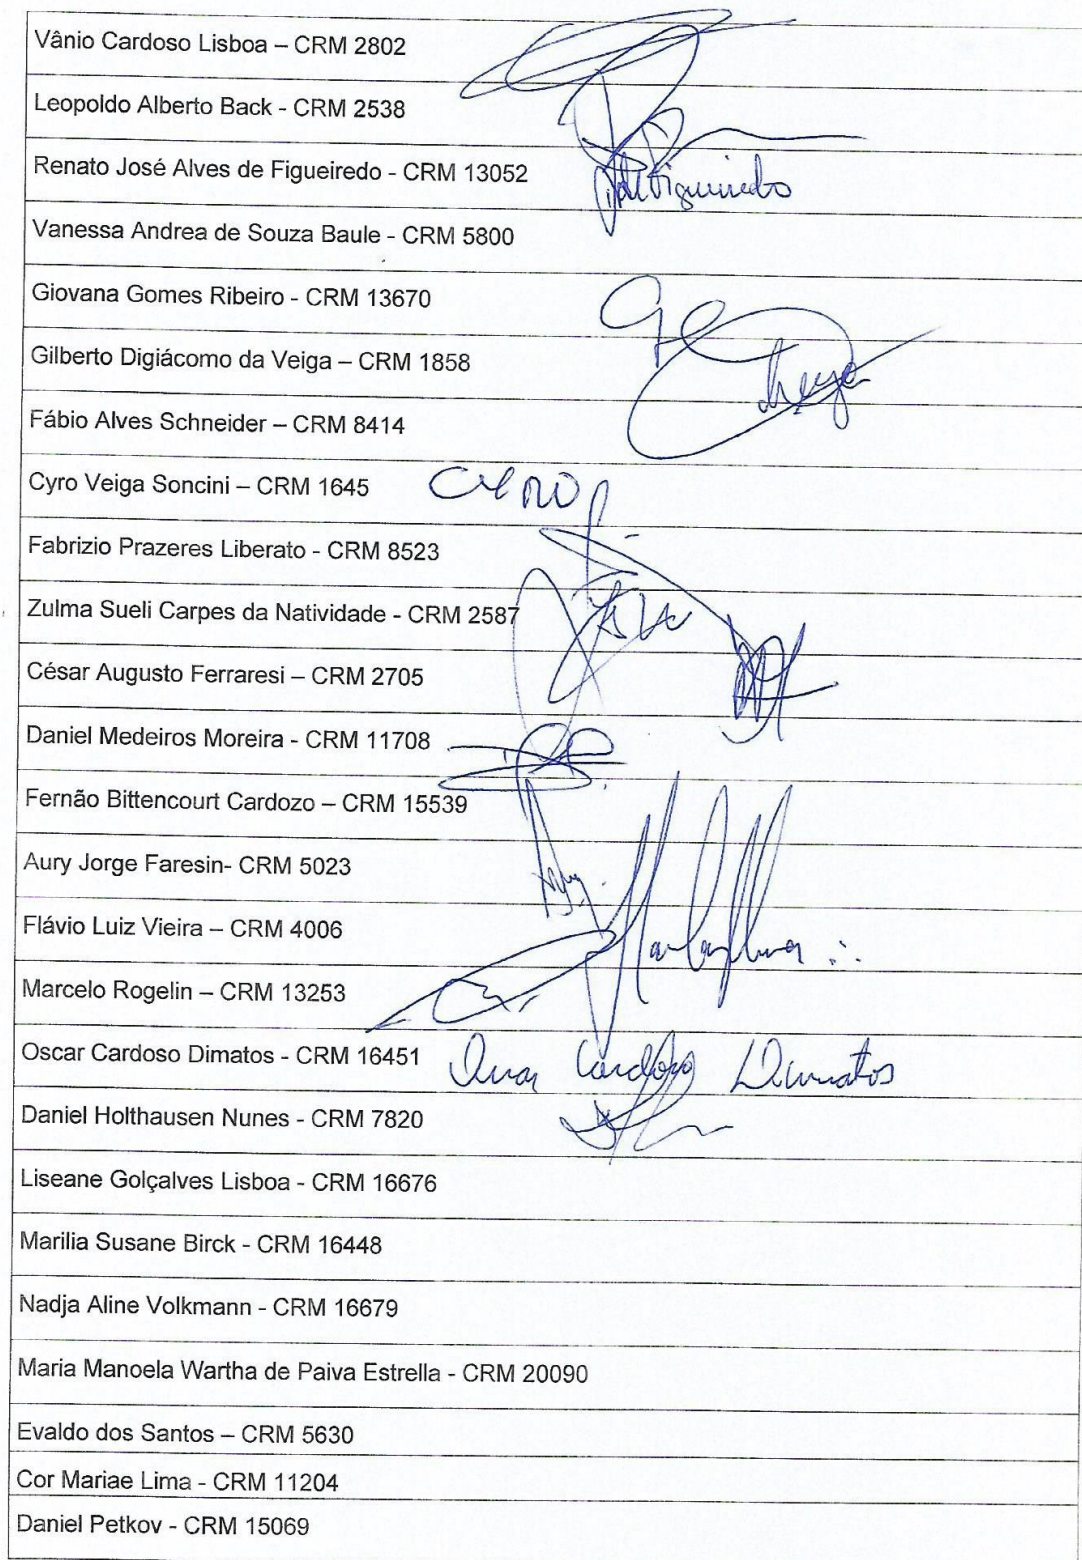 Vânio Cardoso Lisboa – CRM 2802
Leopoldo Alberto Back - CRM 2538
Renato José Alves de Figueiredo - CRM 13052
Figueiredo
Vanessa Andrea de Souza Baule - CRM 5800
Giovana Gomes Ribeiro - CRM 13670
Gilberto Digiácomo da Veiga – CRM 1858
Fábio Alves Schneider – CRM 8414
Cyro Veiga Soncini – CRM 1645 CYRO
Fabrizio Prazeres Liberato - CRM 8523
Zulma Sueli Carpes da Natividade - CRM 2587
César Augusto Ferraresi – CRM 2705
Daniel Medeiros Moreira - CRM 11708
Fernão Bittencourt Cardozo – CRM 15539
Aury Jorge Faresin- CRM 5023
Flávio Luiz Vieira – CRM 4006
Marcelo Rogelin – CRM 13253
Oscar Cardoso Dimatos - CRM 16451 Oscar Cardoso Dimatos
Daniel Holthausen Nunes - CRM 7820
Liseane Golçalves Lisboa - CRM 16676
Marilia Susane Birck - CRM 16448
Nadja Aline Volkmann - CRM 16679
Maria Manoela Wartha de Paiva Estrella - CRM 20090
Evaldo dos Santos – CRM 5630
Cor Mariae Lima - CRM 11204
Daniel Petkov - CRM 15069